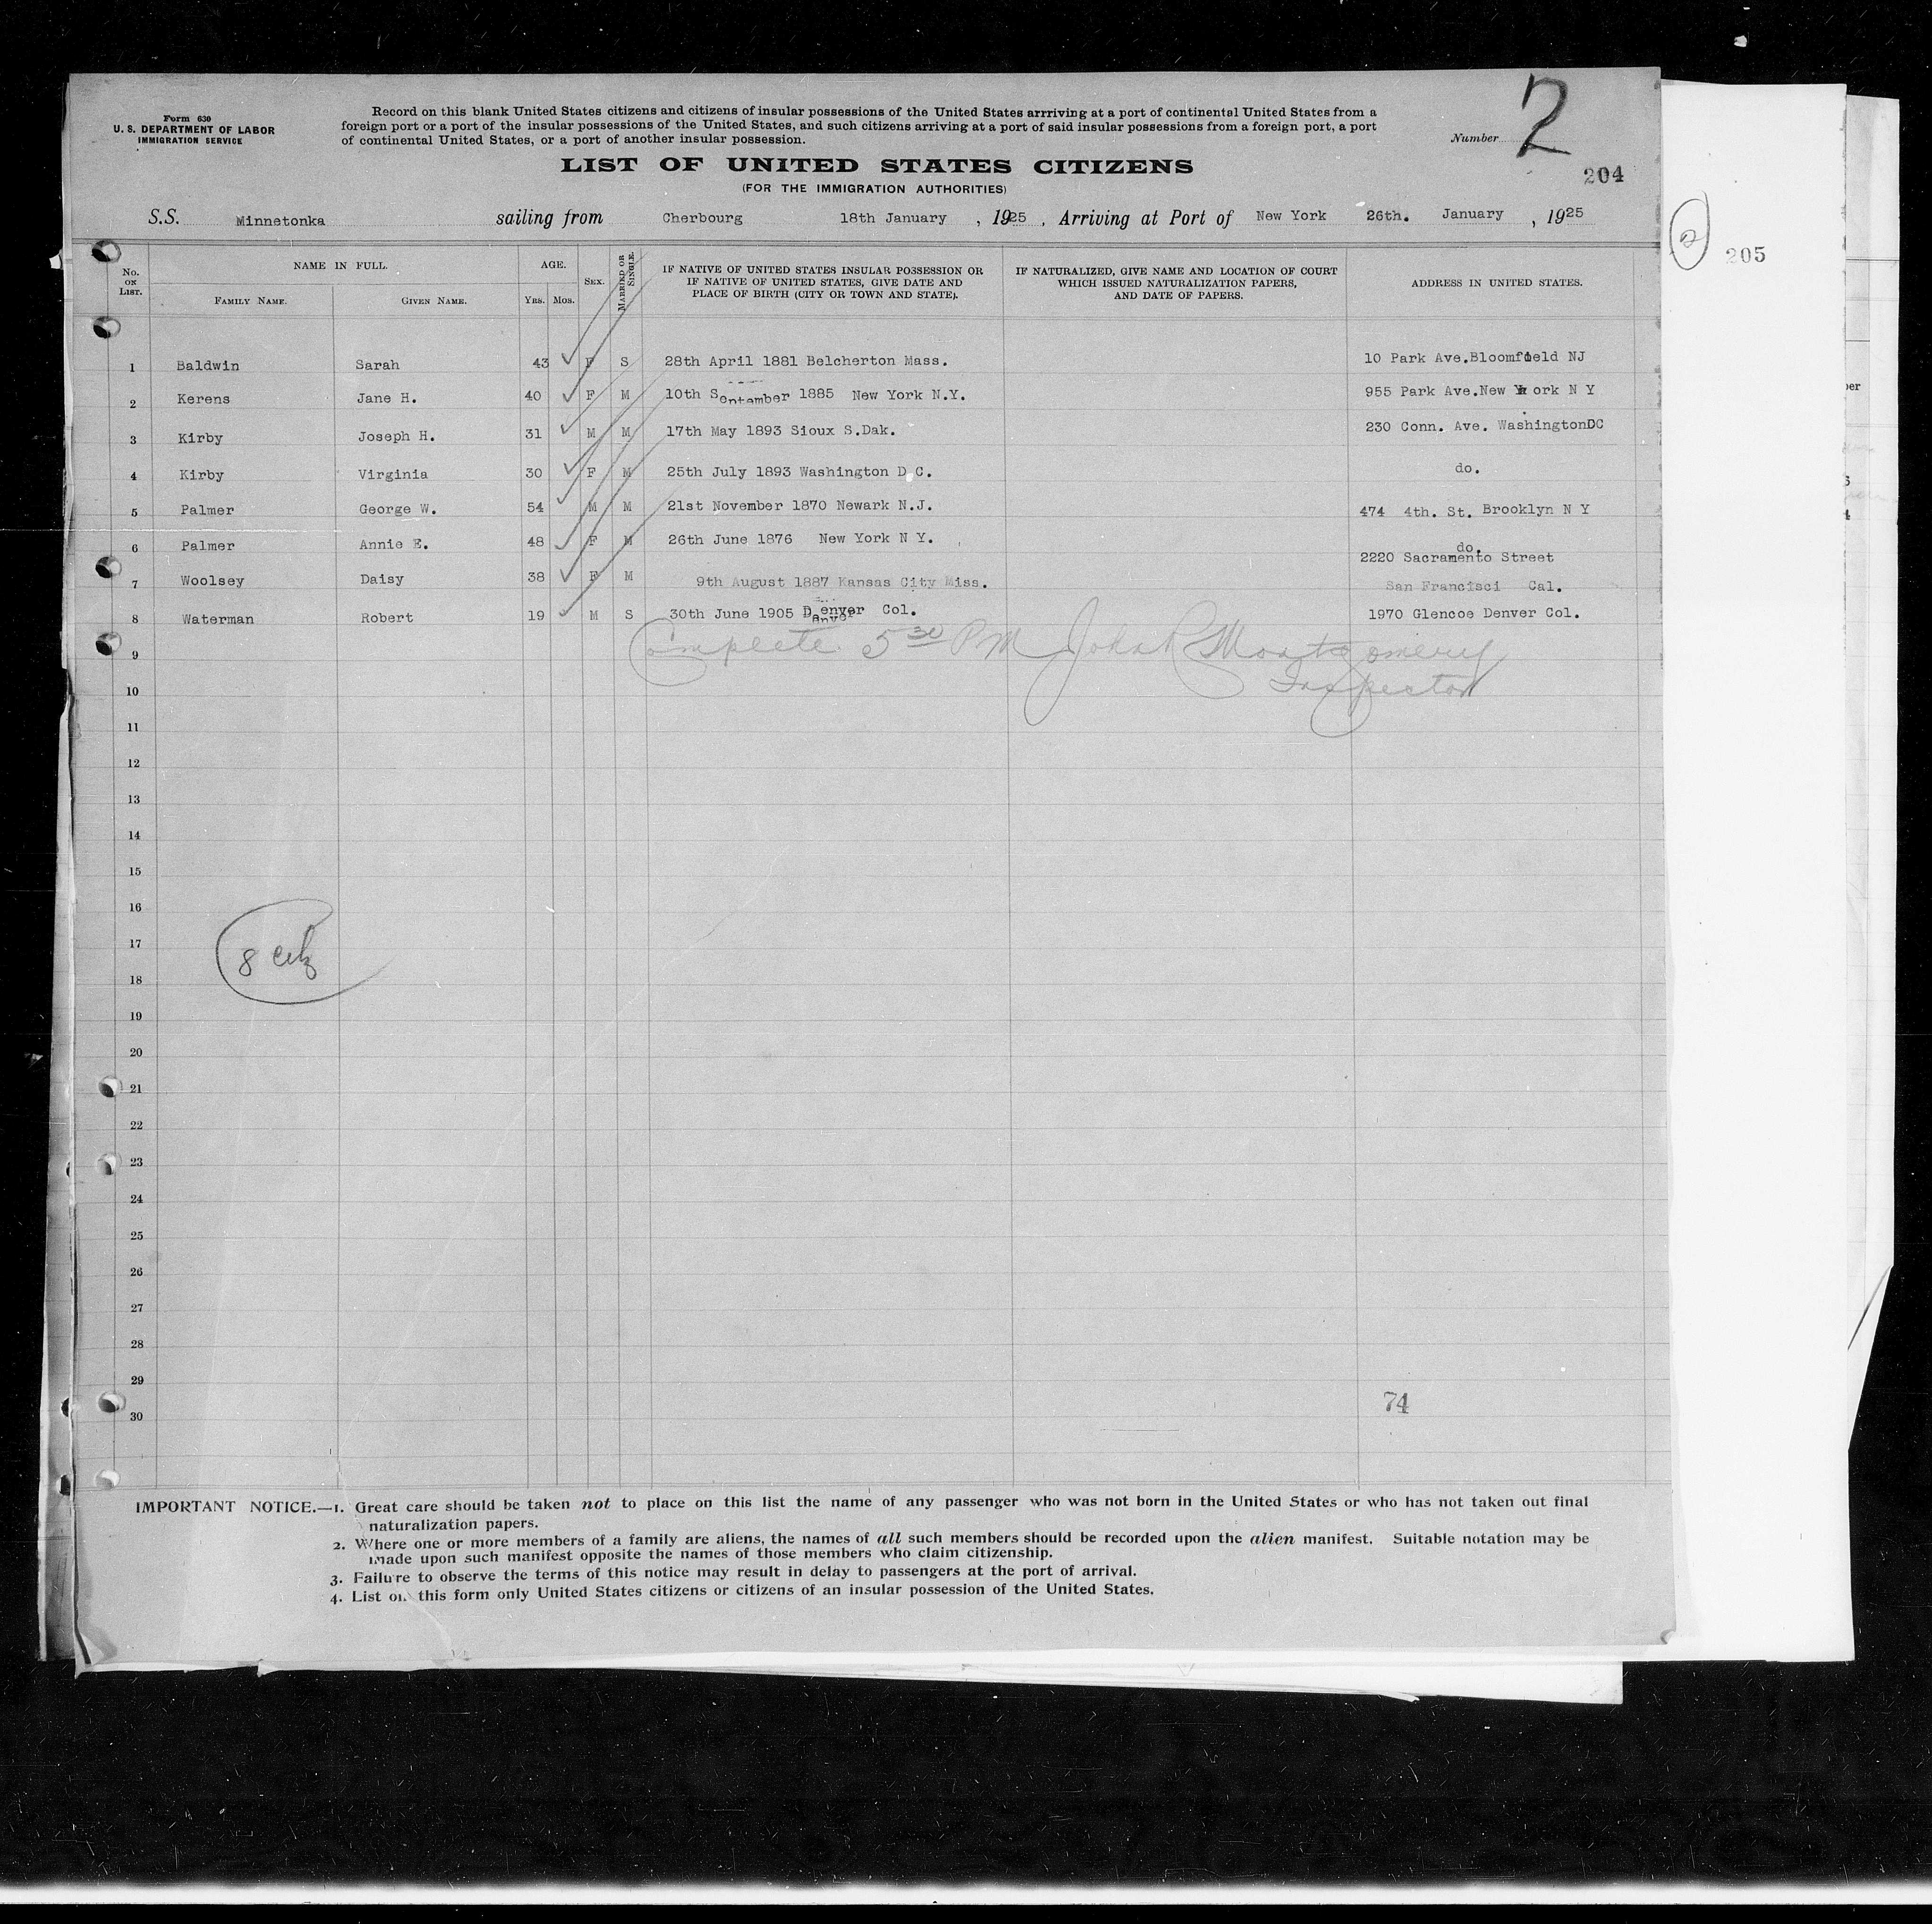 Form 630
U. S. DEPARTMENT OF LABOR
IMMIGRATION SERVICE
Record on this blank United States citizens and citizens of insular possessions of the United States arrriving at a port of continental United States from a
foreign port or a port of the insular possessions of the United States, and such citizens arriving at a port of said insular possessions from a foreign port, a port
of continental United States, or a port of another insular possession.
Number 2
LIST OF UNITED STATES CITIZENS
(FOR THE IMMIGRATION AUTHORITIES)
204
S.S. Minnetonka sailing from Cherbourg 18th January , 1925 , Arriving at Port of New York 26th. January , 1925
2
205
No. on List.
NAME IN FULL.
Family Name.
Given Name.
AGE.
Yrs. Mos.
Sex.
Married or Single.
IF NATIVE OF UNITED STATES INSULAR POSSESSION OR
IF NATIVE OF UNITED STATES, GIVE DATE AND
PLACE OF BIRTH (CITY OR TOWN AND STATE).
IF NATURALIZED, GIVE NAME AND LOCATION OF COURT
WHICH ISSUED NATURALIZATION PAPERS,
AND DATE OF PAPERS.
ADDRESS IN UNITED STATES.
1 Baldwin Sarah 43 F S 28th April 1881 Belcherton Mass. 10 Park Ave.Bloomfield NJ
2 Kerens Jane H. 40 F M 10th September 1885 New York N.Y. 955 Park Ave.New York N Y
3 Kirby Joseph H. 31 M M 17th May 1893 Sioux S.Dak. 230 Conn. Ave. WashingtonDC
4 Kirby Virginia 30 F M 25th July 1893 Washington D.C. do.
5 Palmer George W. 54 M M 21st November 1870 Newark N.J. 474 4th. St. Brooklyn N Y
6 Palmer Annie E. 48 F M 26th June 1876 New York N Y. do.
7 Woolsey Daisy 38 F M 9th August 1887 Kansas City Miss. 2220 Sacramento Street
San Francisci Cal.
8 Waterman Robert 19 M S 30th June 1905 Denver Col. 1970 Glencoe Denver Col.
Complete 5 30 PM John R Montgomery
Inspector
9
10
11
12
13
14
15
16
17
8 citz
18
19
20
21
22
23
24
25
26
27
28
29
74
30
IMPORTANT NOTICE.—1. Great care should be taken not to place on this list the name of any passenger who was not born in the United States or who has not taken out final
naturalization papers.
2. Where one or more members of a family are aliens, the names of all such members should be recorded upon the alien manifest. Suitable notation may be
made upon such manifest opposite the names of those members who claim citizenship.
3. Failure to observe the terms of this notice may result in delay to passengers at the port of arrival.
4. List on this form only United States citizens or citizens of an insular possession of the United States.